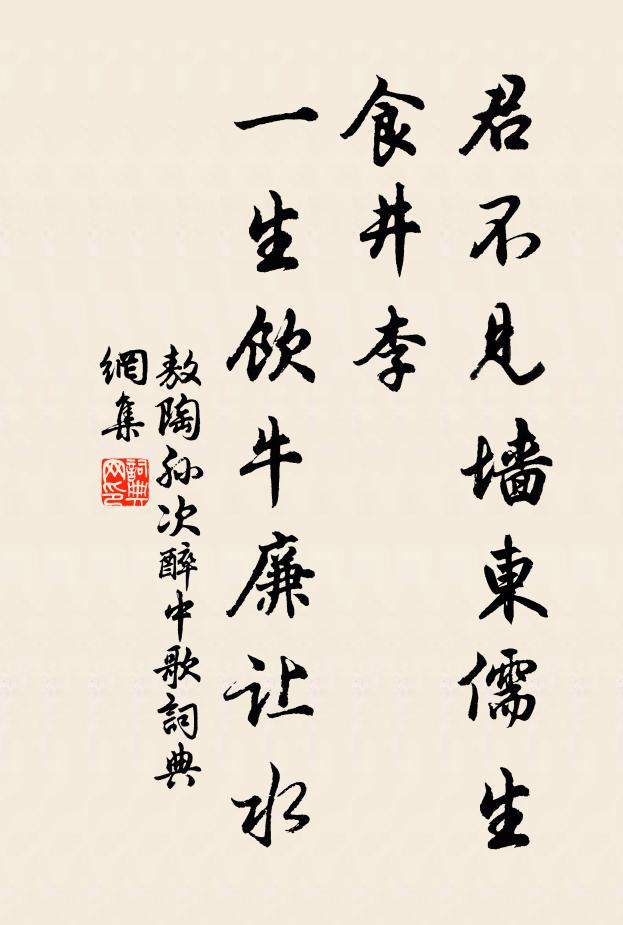 君不见墙東儒生
食井李
一生飲牛廉让水
敖陶孙次醉中歌詞典
網集
詞典
网印